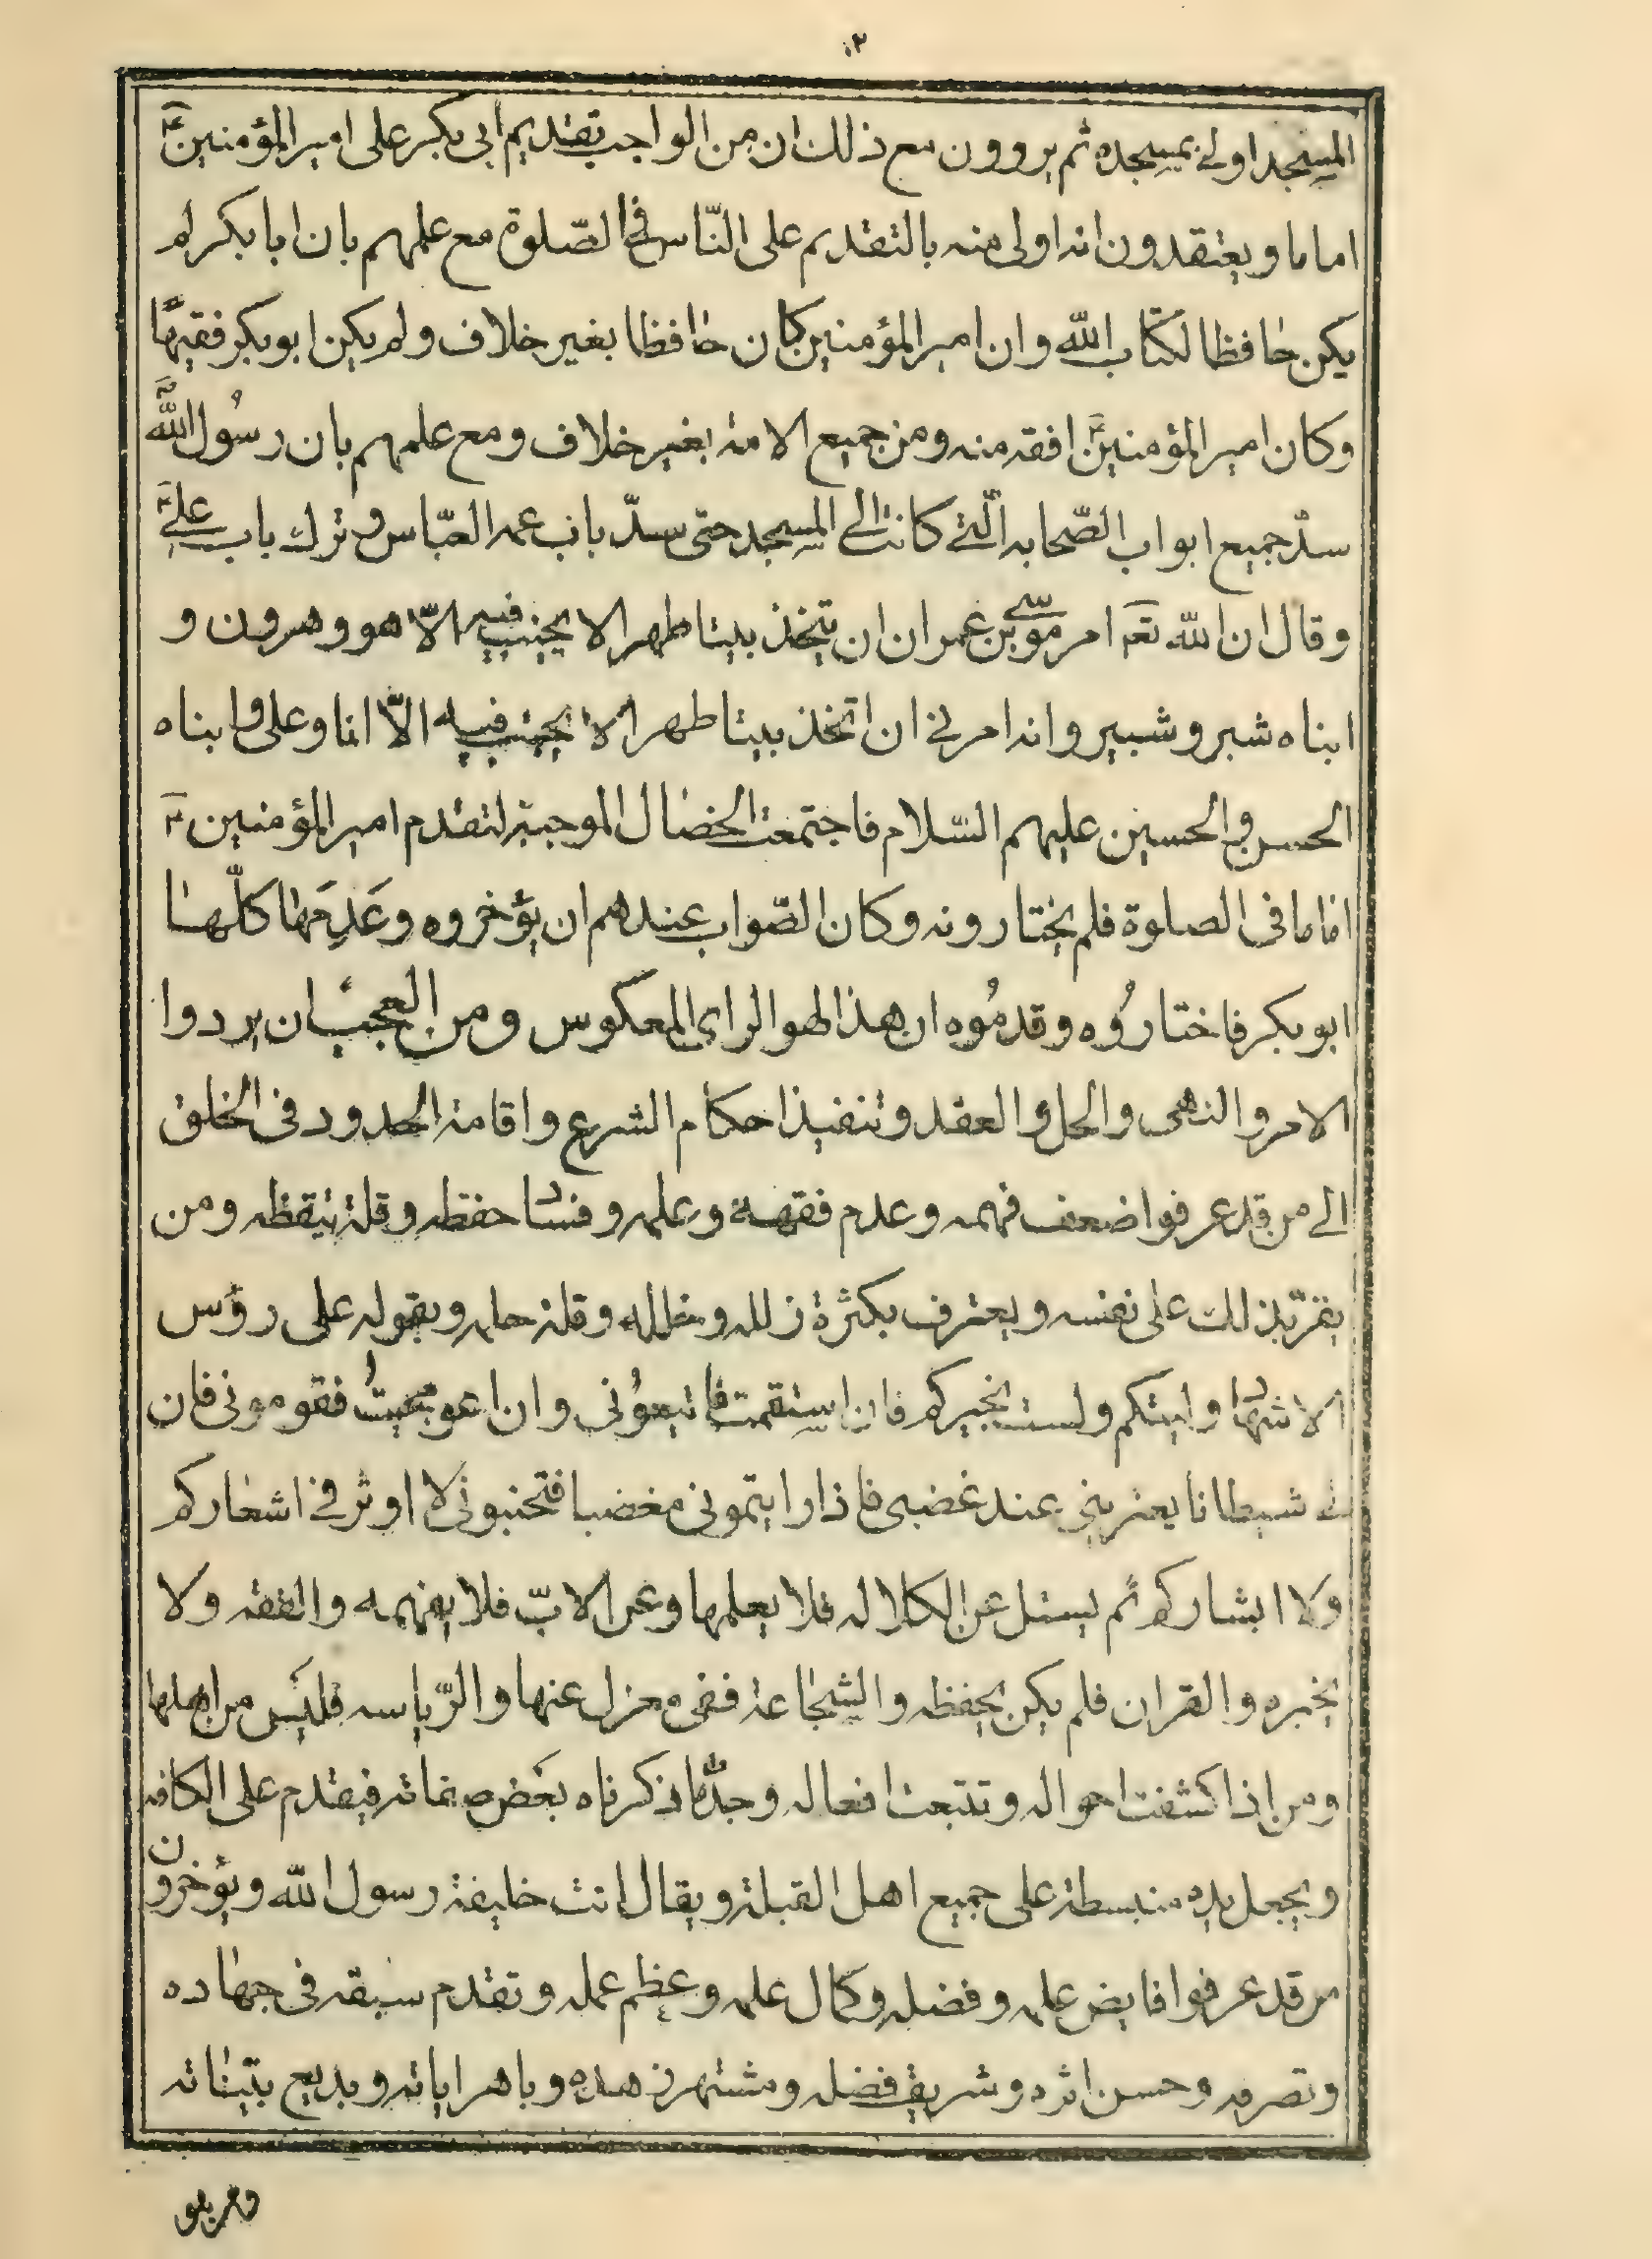 المسجد اولى بمسجده ثم يروون مع ذلك ان من الواجب تقديم أبى بكر على امير المؤمنين ع
اماما ويعتقدون انه اولى منه بالتقديم على النّاس فى الصّلوة مع علمهم بان ابا بكر لم
يكن حافظا لكتاب الله وان امير المؤمنين كان حافظا بغير خلاف ولم يكن ابو بكر فقيهًا
وكان امير المؤمنين ع افقه منه ومن جميع الامة بغير خلاف ومع علمهم بان رسُول الله ص
سدّ جميع ابواب الصّحابه الّتى كانت الى المسجد حتى سدّ باب عمه العبّاس و ترك باب على ع
وقال ان الله تعه امر موسى بن عمران ان يتخذ بيتا طهرا لا يجنب فيه الّا هو وهرون و
ابناه شبر وشبير وانه امرنى ان اتخذ بيتا طهرا لا يجنب فيه الّا انا وعلى و ابناه
الحسن و الحسين عليهم السّلام فاجتمعت الخصال الموجبة لتقدم امير المؤمنين ع
اماما فى الصلوة فلم يختارونه وكان الصّواب عندهم ان يؤخروه وعَدِمَها كلّها
ابو بكر فاختارُوه وقدمُوه ان هذا لهو الراى المعكوس ومن العجب ان يردوا
الامر والنهى والحل و العقد وتنفيذ احكام الشرع واقامة الحدود فى الخلق
الى من قد عرفوا ضعف فهمه وعدم فقهه وعلمه وفساد حفظه وقلة تيقظه ومن
يقرّ بذلك على نفسه ويعترف بكثرة زلله وخلله وقلة حلمه وبقوله على رؤس
الاشهاد وليتكم ولست بخيركم فان استقمت فاتبعُونى وان اعوججتُ فقومونى فان
لى شيطانا يعترينى عند غضبى فاذا رايتمونى مغضبا فتجنبونى لا اوثر فى اشعاركم
ولا ابشاركم ثم يسئل عن الكلاله فلا يعلمها وعن الابّ فلا يفهمه والفقه ولا
يخبره والقران فلم يكن يحفظه والشجاعة ففى معزل عنها والرّياسه فليس من اهلها
ومن اذا كشفت احواله وتتبعت افعاله وجدّت ما ذكرناه بعض صفاته فيقدم على الكافه
ويجعل يده منبسطة على جميع اهل القبلة ويقال انت خليفة رسول الله ويؤخرون
من قد عرفوا فايض علمه وفضله وكمال علمه وعظم عمله وتقدم سبقه فى جهاده
ونصرته وحسن اثره وشريف فضله ومشتهر زهده وباهر اياته وبديع بيّناته